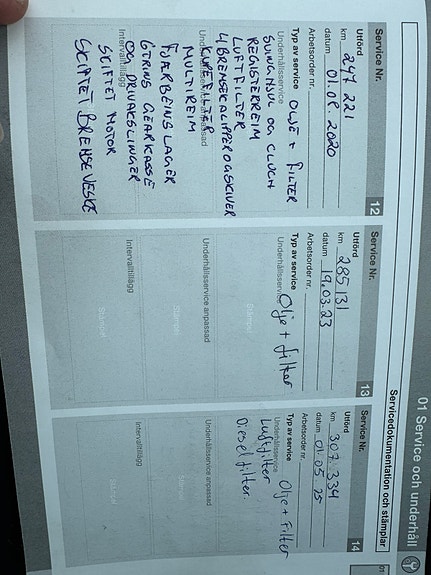 01 Service och underhåll
Servicedokumentation och stämplar
Service Nr. 12
Utförd
km 247 221
datum 01.08.2020
Arbetsorder nr.
Typ av service OLJE + FILTER
Underhållsservice
SVINGHJUL OG CLUCH
REGISTERREIM
LUFTFILTER
4 BREMSEKALIPPER OG SKIVER
Underhållsservice anpassad
KUPEFILTER
MULTIREIM
FJÆRBEINSLAGER
GIRINS GEARKASSE
Intervalltillägg
OG DRIVAKSLINGER
SKIFTET MOTOR
SKIFTET BREMSEVESKE
Service Nr. 13
Utförd
km 285131
datum 19.03.23
Arbetsorder nr.
Typ av service Olje + filter
Underhållsservice
Stämpel
Underhållsservice anpassad
Stämpel
Intervalltillägg
Stämpel
Service Nr. 14
Utförd
km 307.334
datum 01.05.25
Arbetsorder nr.
Typ av service Olje + Filter
Underhållsservice
Luftfilter
Dieselfilter.
Underhållsservice anpassad
Stämpel
Intervalltillägg
Stämpel
01